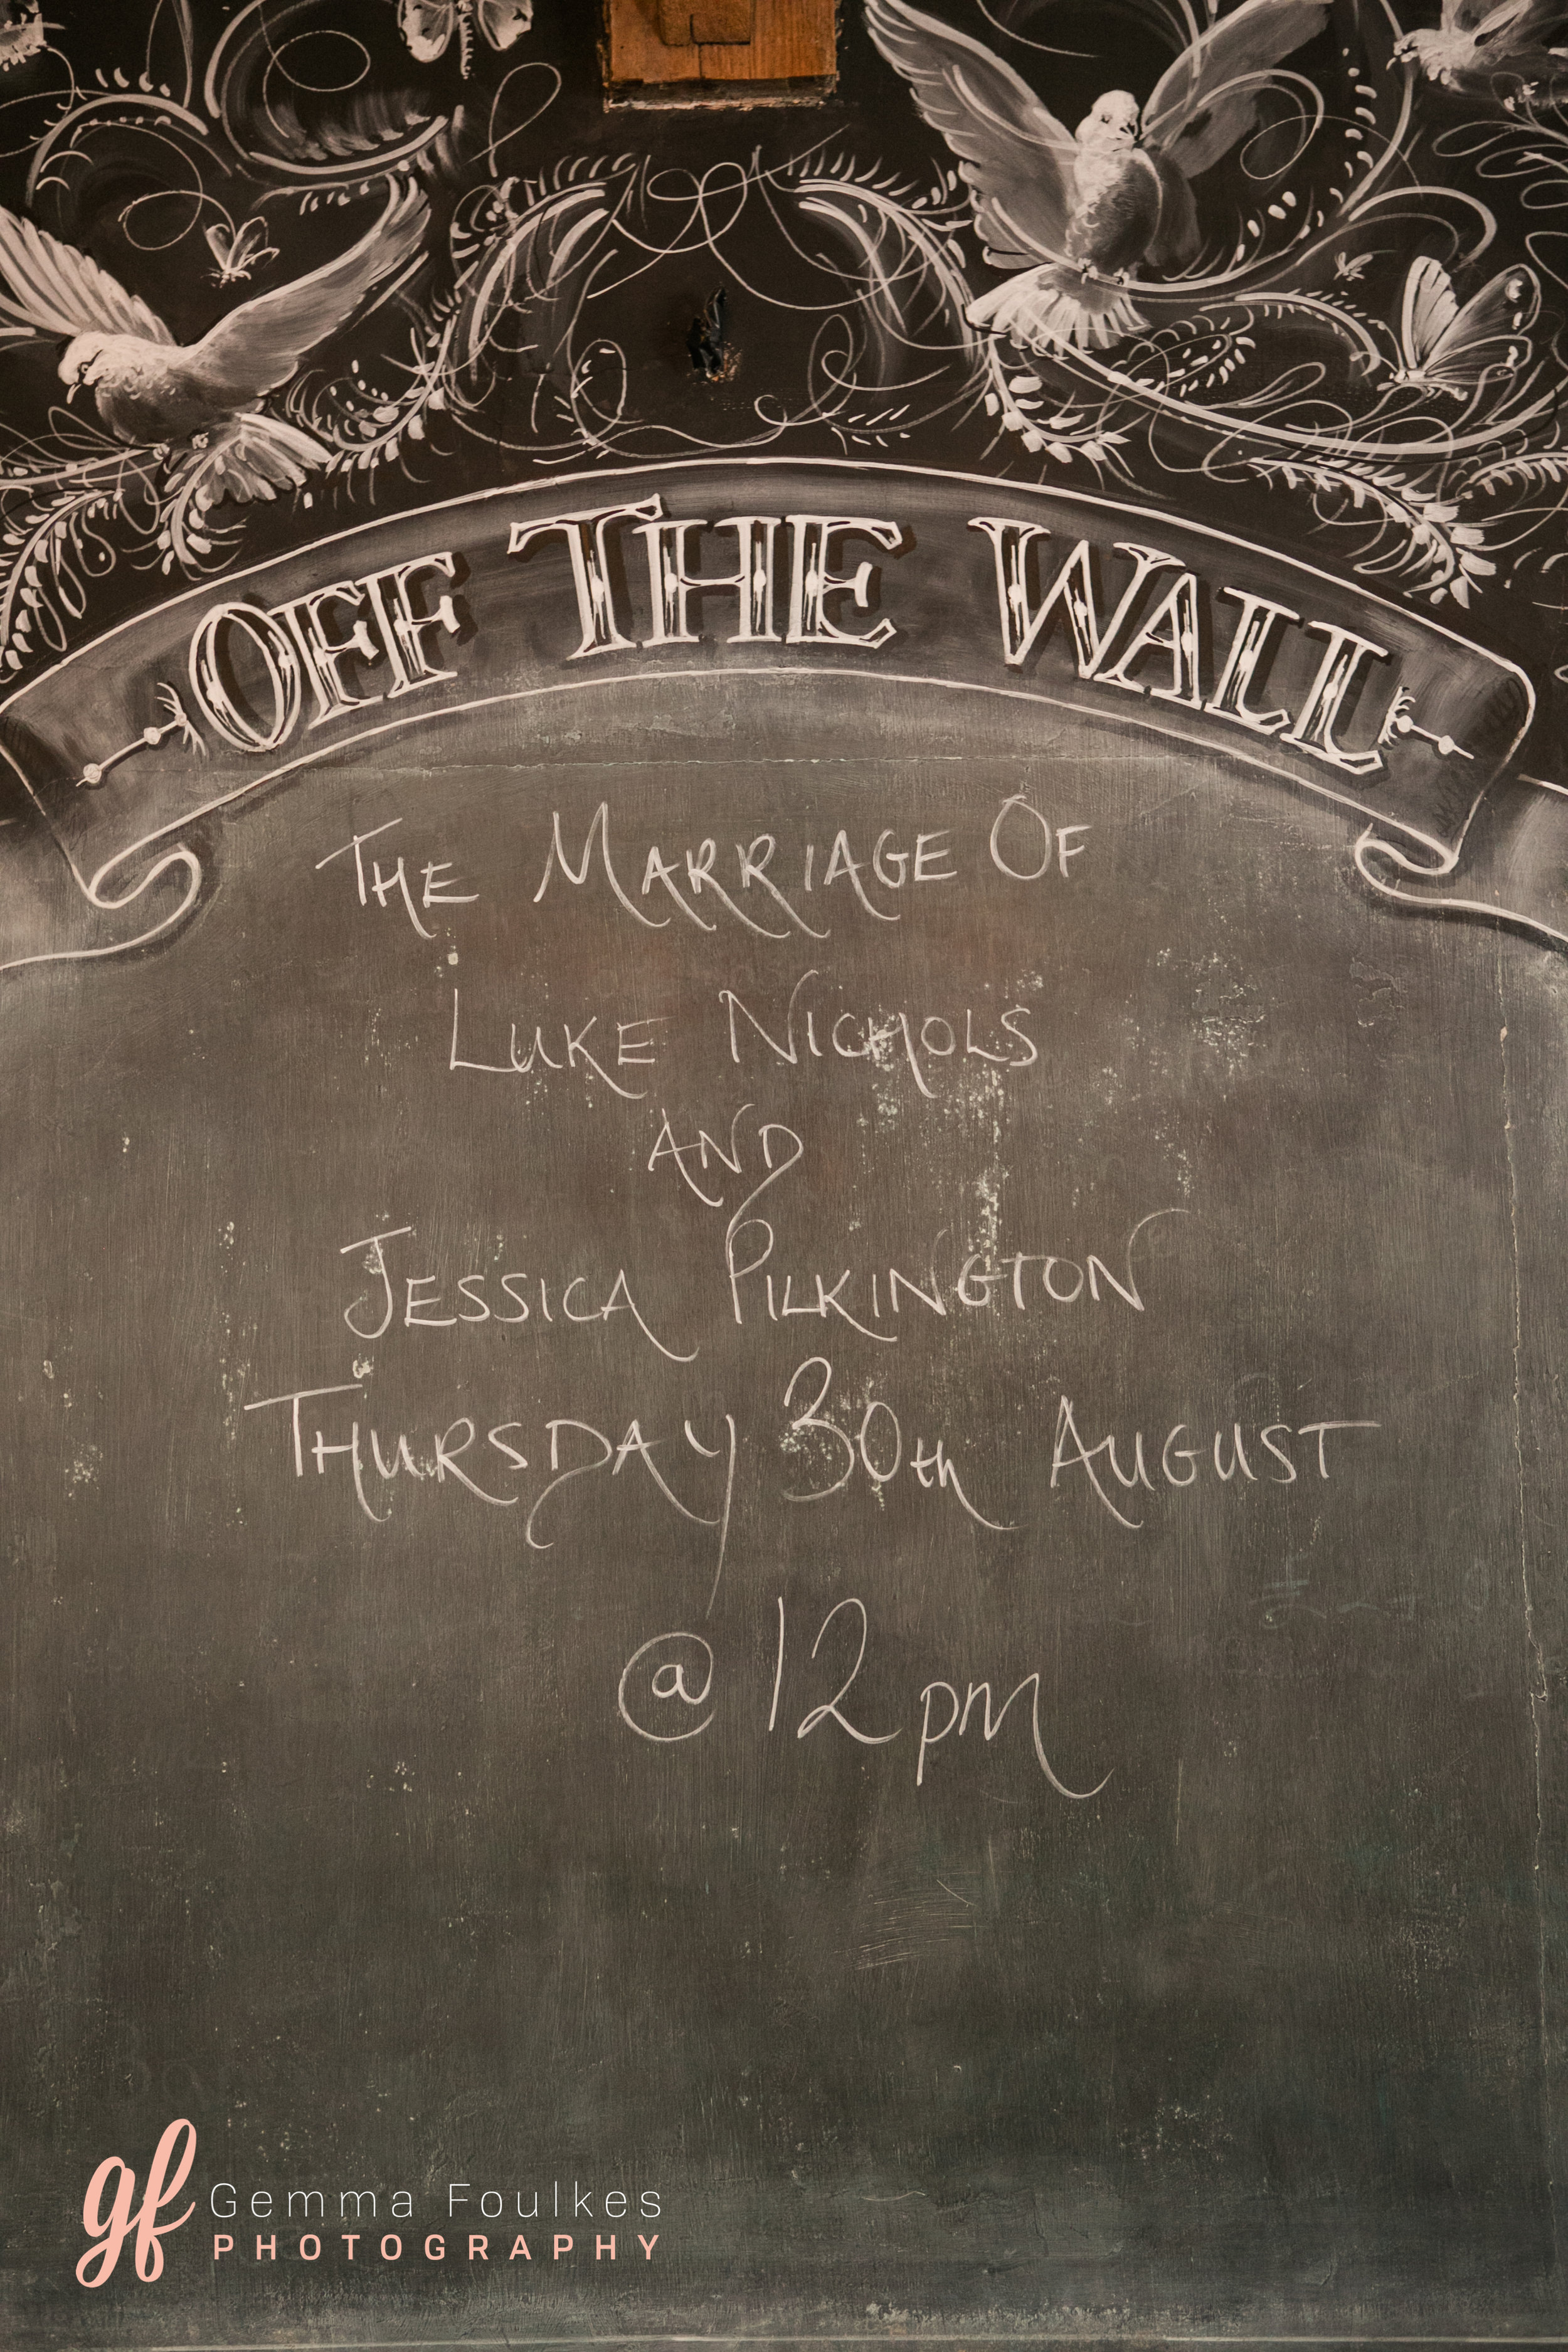 OFF THE WALL
THE MARRIAGE OF
LUKE NICHOLS
AND
JESSICA PILKINGTON
THURSDAY 30th AUGUST
@ 12 pm
gf
Gemma Foulkes
PHOTOGRAPHY